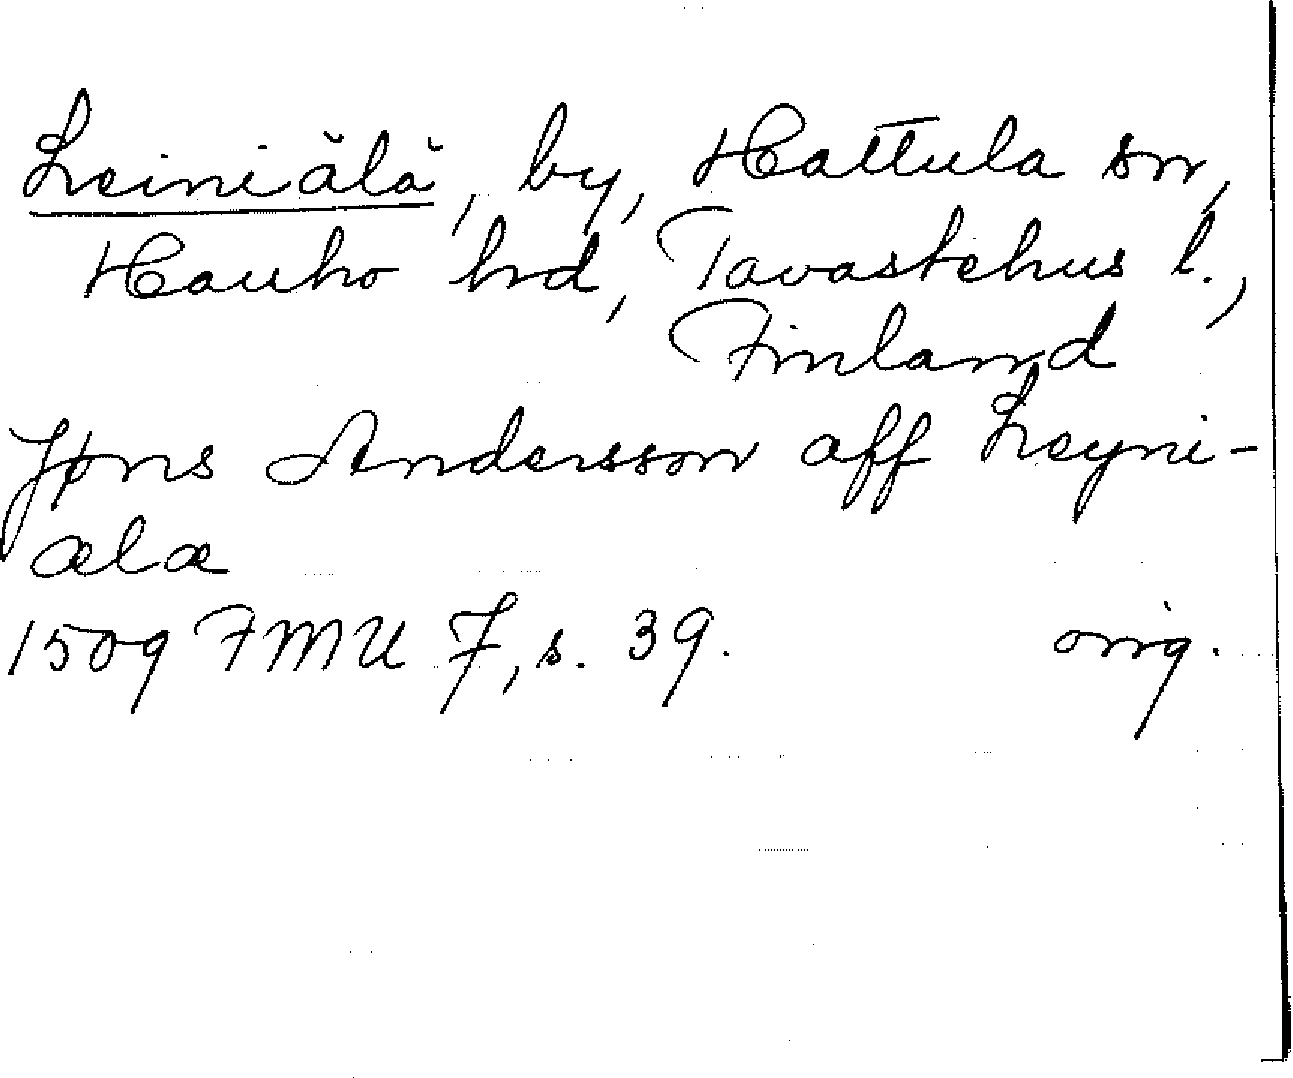 Leiniälä, by, Hattula sn,
Hauho hd, Tavastehus l.,
Finland
Jøns Andersson aff Leyni-
ælæ
1509 FMU 7, s. 39. orig.